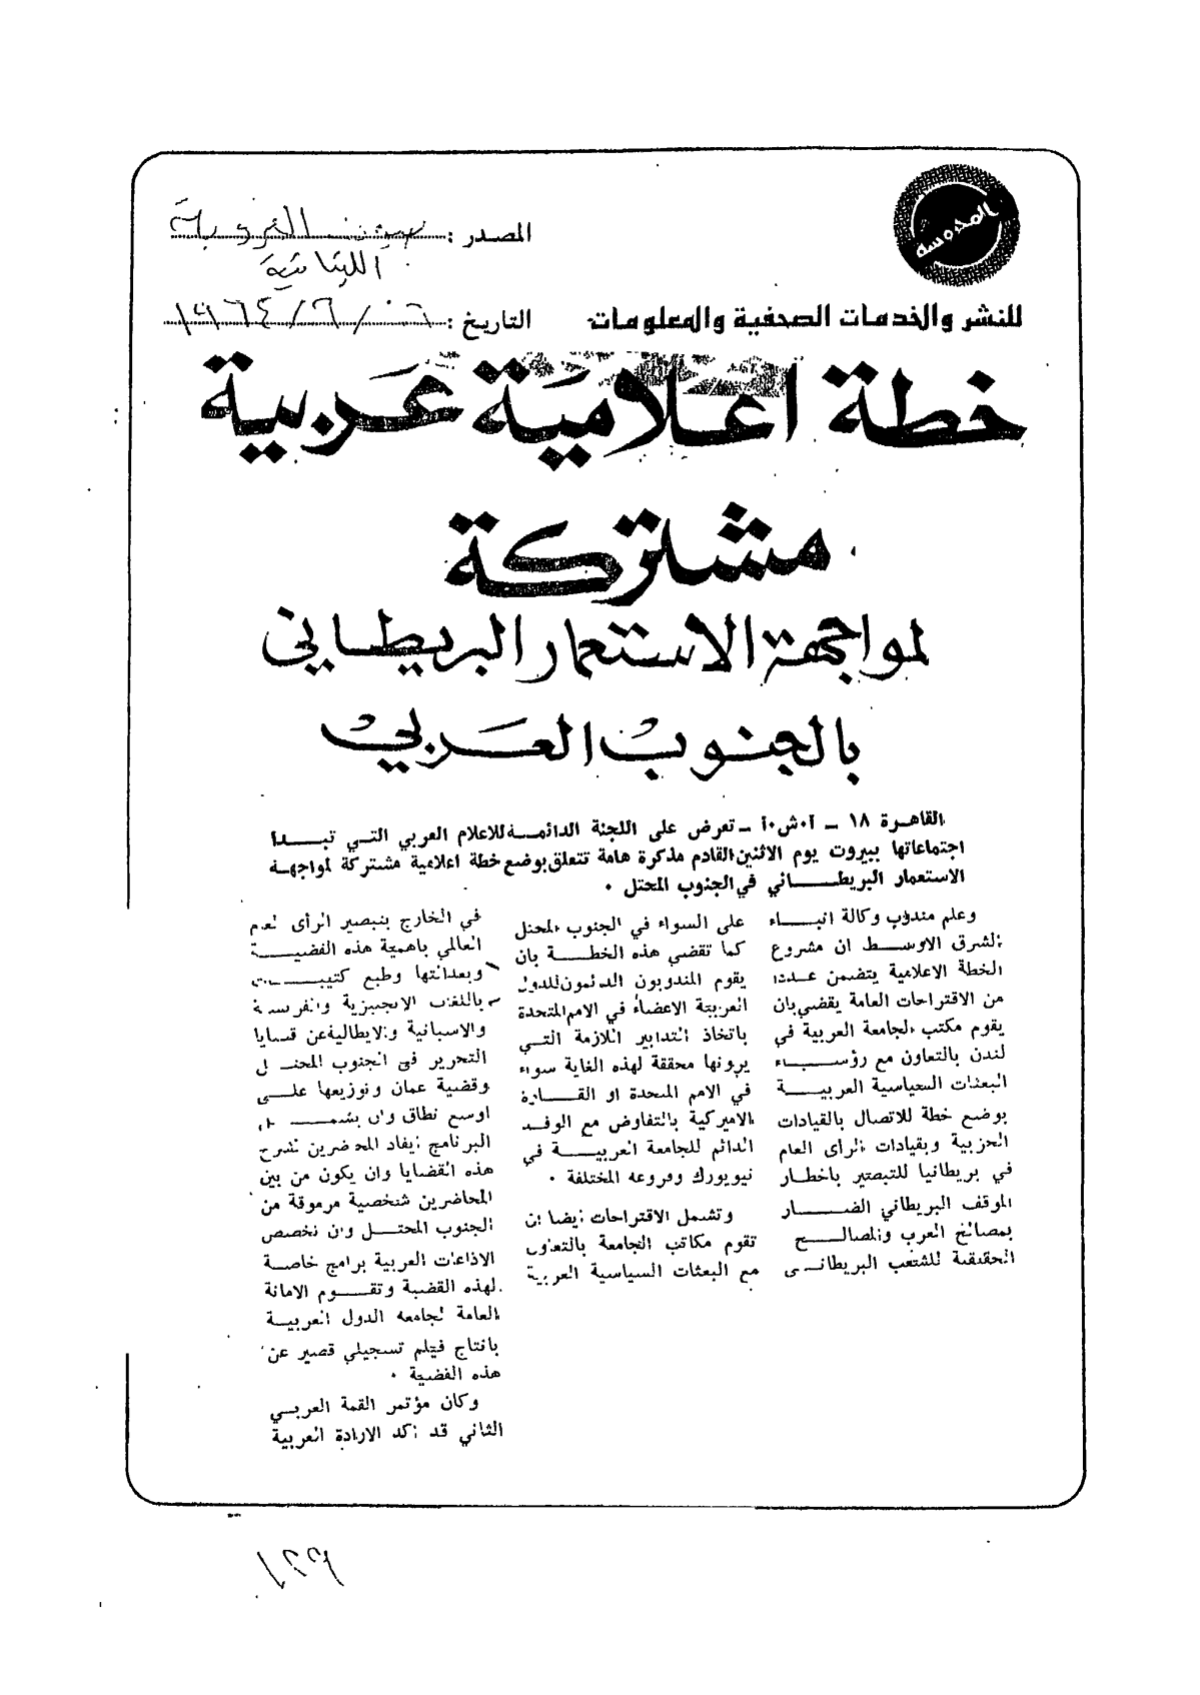 المحروسة
المصدر : صوت العروبة
اللبنانية
للنشر والخدمات الصحفية والمعلومات
التاريخ :
خطة اعلامية عربية
مشتركة
لمواجهة الاستعمار البريطاني
بالجنوب العربي
القاهرة ١٨ - أ٠ش٠أ - تعرض على اللجنة الدائمة للاعلام العربي التي تبدا
اجتماعاتها ببيروت يوم الاثنين القادم مذكرة هامة تتعلق بوضع خطة اعلامية مشتركة لمواجهة
الاستعمار البريطاني في الجنوب المحتل ٠
وعلم مندوب وكالة انباء
الشرق الاوسط ان مشروع
الخطة الاعلامية يتضمن عددا
من الاقتراحات العامة يقضي بان
يقوم مكتب الجامعة العربية في
لندن بالتعاون مع رؤساء
البعثات السياسية العربية
بوضع خطة للاتصال بالقيادات
الحزبية وبقيادات الرأى العام
في بريطانيا للتبصير باخطار
الموقف البريطاني الضار
بمصالح العرب والمصالح
الحقيقية للشعب البريطاني
على السواء في الجنوب المحتل
كما تقضي هذه الخطة بان
يقوم المندوبون الدائمون للدول
العربية الاعضاء في الامم المتحدة
باتخاذ التدابير اللازمة التي
يرونها محققة لهذه الغاية سواء
في الامم المتحدة او القارة
الاميركية بالتفاوض مع الوفد
الدائم للجامعة العربية في
نيويورك وفروعه المختلفة ٠
وتشمل الاقتراحات ايضا ان
تقوم مكاتب الجامعة بالتعاون
مع البعثات السياسية العربية
في الخارج بتبصير الرأى العام
العالمي باهمية هذه القضية
وبعدالتها وطبع كتيبات
باللغات الانجليزية والفرنسية
والاسبانية والايطالية عن قضايا
التحرير في الجنوب المحتل
وقضية عمان وتوزيعها على
اوسع نطاق وان يشمل
البرنامج ايفاد المحاضرين لشرح
هذه القضايا وان يكون من بين
المحاضرين شخصية مرموقة من
الجنوب المحتل وان تخصص
الاذاعات العربية برامج خاصة
لهذه القضية وتقوم الامانة
العامة لجامعة الدول العربية
بانتاج فيلم تسجيلي قصير عن
هذه القضية ٠
وكان مؤتمر القمة العربي
الثاني قد اكد الارادة العربية